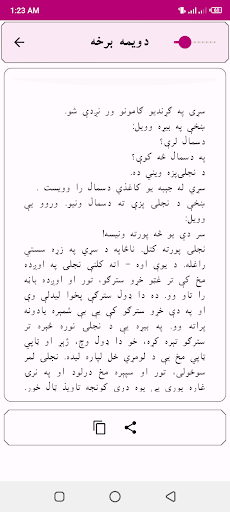 1:23 AM
دویمه برخه
سړی په ګړندیو ګامونو ور نږدې شو.
ښځې په بیړه وویل:
دسمال لرې؟
په دسمال څه کوې؟
د نجلۍپزه وینې ده.
سړي له جیبه یو کاغذي دسمال را وویست .
ښځې د نجلۍ پزې ته دسمال ونیو. وروو یې
وویل:
سر دې یو څه پورته ونیسه!
نجلۍ پورته کتل. ناڅاپه د سړي په زړه سستي
راغله. د یوې اوه – اته کلنې نجلۍ په اوږده
مخ کې تر غټو خړو سترګو، تور او اوږده باڼه
را تاو وو. ده دا ډول سترګې پخوا لیدلې وې
او په دې خړو سترګو کې یې بې شمېره یادونه
پراته وو. په بیړه یې د نجلۍ نوره څېره تر
سترګو تېره کړه، خو دا ډول وچ، ژېړ او ټاپي
ټاپي مخ یې د لومړي ځل لپاره لیده. نجلۍ لمر
سوځولی، تور او سپېره مخ درلود او په نرۍ
غاړه پورې یې یوه درې کونجه تاویذ ټال خوړ.